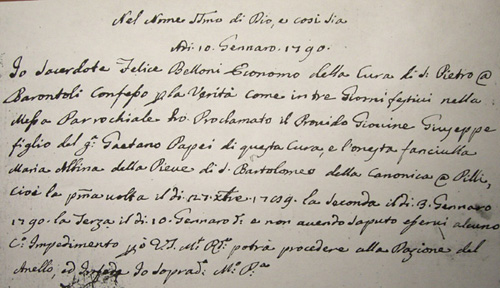 Nel Nome SSmo di Dio, e così sia
Adi 10. Gennaro. 1790.
Io Sacerdote Felice Belloni Economo della Cura di S. Pietro @
Barontoli Confesso p la Verità come in tre Giorni festivi nella
Messa Parrochiale ho Proclamato il Provido Giovine Giuseppe
figlio del q. Gaetano Papei di questa Cura, e l'onesta fanciulla
Maria Albina della Pieve di S. Bartolomeo della Canonica @ Pilli,
cioè la pma volta il dì 27 Xbre 1789. la Seconda il dì 3. Gennaro
1790. la Terza il dì 10. Gennaro d. e non avendo saputo esservi alcuno
Co Impedimento però V.S. M. R. potrà procedere alla Dazione del
Anello, ed In fede Io Soprad. M. P.a